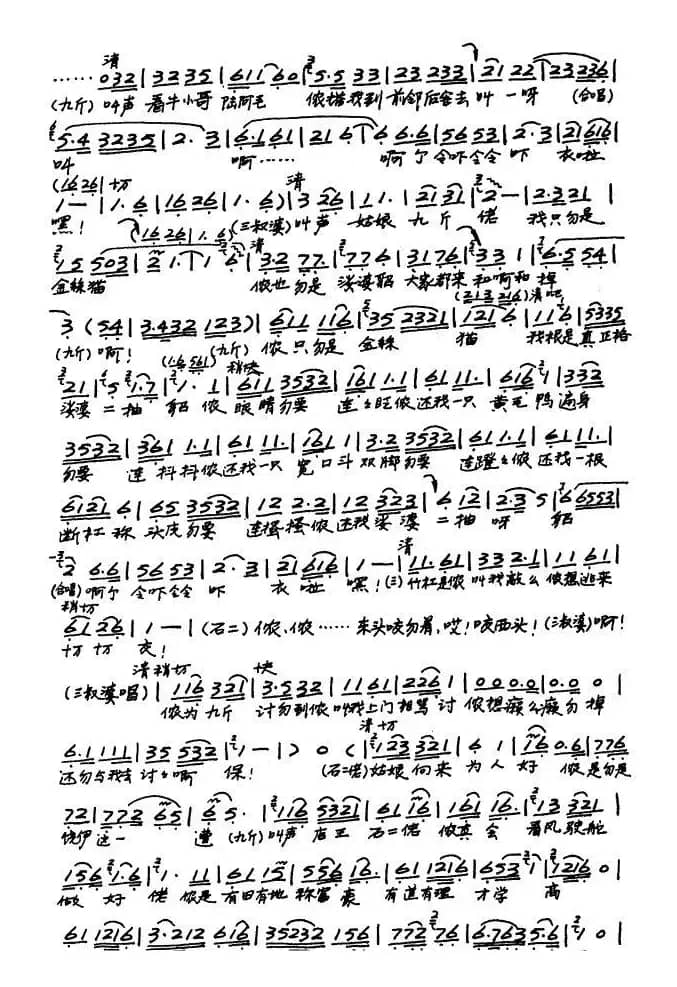 清
…… 032 | 3235 | 611 60 | 5·5 33 | 23 233 | 21 22 | 23 236 |
(九斤) 叫声 看牛小哥 陆阿毛 侬搭我到 前邻后舍去 叫 一呀 (合唱)
5·4 3235 | 2· 3 | 6·1 61 | 21 6 | 6 6·6 | 56 53 | 2·3 | 21 616 |
叫 啊…… 啊尔 令吓令令 吓 衣啦
(16 26 | 十万 清
1 — | 1· 6 | 16 26 | 1· 6) | 3 26 | 1 1· | 21 31 | 2 — | 2·321 |
嘿! (16 26 | 1· 6) (三叔婆)叫声 姑娘 九斤 佬 我只勿是
清
15 503 | 2 1· | 1 6 | 3·2 77 | 77 6 | 3176 | 33 1 | 6·5 54 |
金丝猫 侬也勿是 婆婆貂 大家都来 和啊和 掉
(213 216) 清
3 (54 | 3·432 123) | 611 116 | 35 2321 | 121 6 | 116 | 5335
(九斤) 啊! (1·6 561) (九斤) 侬只勿是 金丝 猫 我根是真正格
稍快
21 | 5 1·7 | 1· 1 | 611 3532 | 161 1·1 | 61 11· | 616 1 | 332
二抽 貂侬 眼睛勿要 连 旺侬还我一只 黄毛 鸭 遍身
3532 | 361 1·1 | 61 11· | 161 1 | 3·2 3532 | 61 1·1 | 61 11· |
勿要 连 抖抖侬还我一只 宽口斗 双脚勿要 连蹬 侬还我一根
6121 6 | 65 3532 | 12 2·2 | 12 323 | 6 12 | 2·3 5 | 6 6553 |
断杠称 头皮勿要 连搔搔侬还我 婆 二抽 呀 貂
清
2 6·6 | 56 53 | 2· 3 | 21 616 | 1 — | 11· 61 | 33 2·1 | 11 61 |
(合唱)啊尔 令吓令令 吓 衣啦 嘿! (三)竹杠是侬 叫我敲么 侬想逃来
稍切
61 26 | 1 — | (石二) 侬、侬…… 东头咬勿着, 哎! 咬西头! (三叔婆)啊!
十万十万 衣!
清稍切 快
(三叔婆唱) | 116 321 | 3·532 | 11 61 | 226 1 | 00 0·0 | 0·0 0 |
侬为九斤 讨勿到侬叫我上门相骂 讨 侬想癞么癞勿掉
清切
6·1 111 | 35 532 | 1 — | ) 0 ( | 123 321 | 6 1 | 16 0·6 | 776 |
还勿与我去讨 啊 保! (石二佬)姑娘 向来 为人 好 侬是勿是
72 | 772 65 | 6 5· | 116 5321 | 61 16 | 161 16· | 13 321 |
饶伊这一 遭 (九斤)叫声 店王 石二佬 做真会 看风驶舵
156 1·6 | 1· 11 | 61 15 | 556 16· | 61 1216 | 653 1 | 1216 0 |
做 好 佬 侬是 有田有地 称富豪 有道有理 才学 高
61 1216 | 3·212 616 | 35232 156 | 772 76 | 6·763 5·6 | 1 0 |